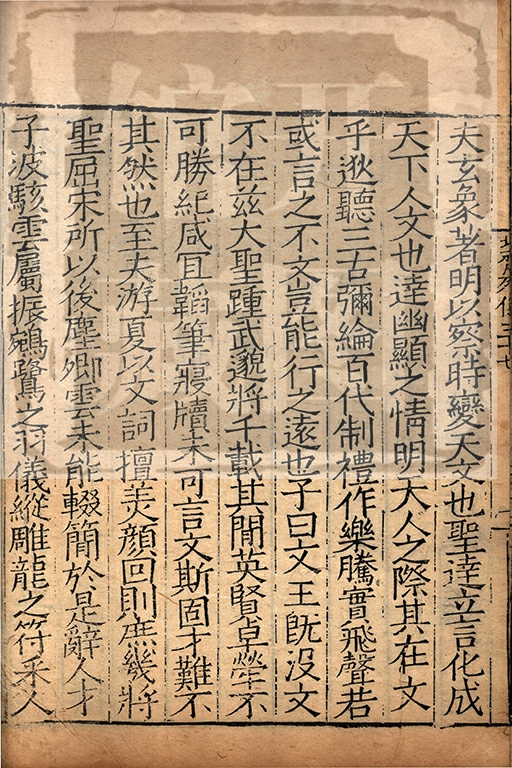 夫玄象著明以察時變天文也聖達立言化成
天下人文也達幽顯之情明天人之際其在文
乎逖聽三古彌綸百代制禮作樂騰實飛聲若
或言之不文豈能行之遠也子曰文王旣没文
不在兹大聖踵武邈將千載其間英賢卓犖不
可勝紀咸宜韜筆寢牘未可言文斯固才難不
其然也至夫游夏以文詞擅美顔回則庶幾將
聖屈宋所以後塵卿雲未能輟簡於是辭人才
子波駭雲屬振鵷鷺之羽儀縱雕龍之符采人